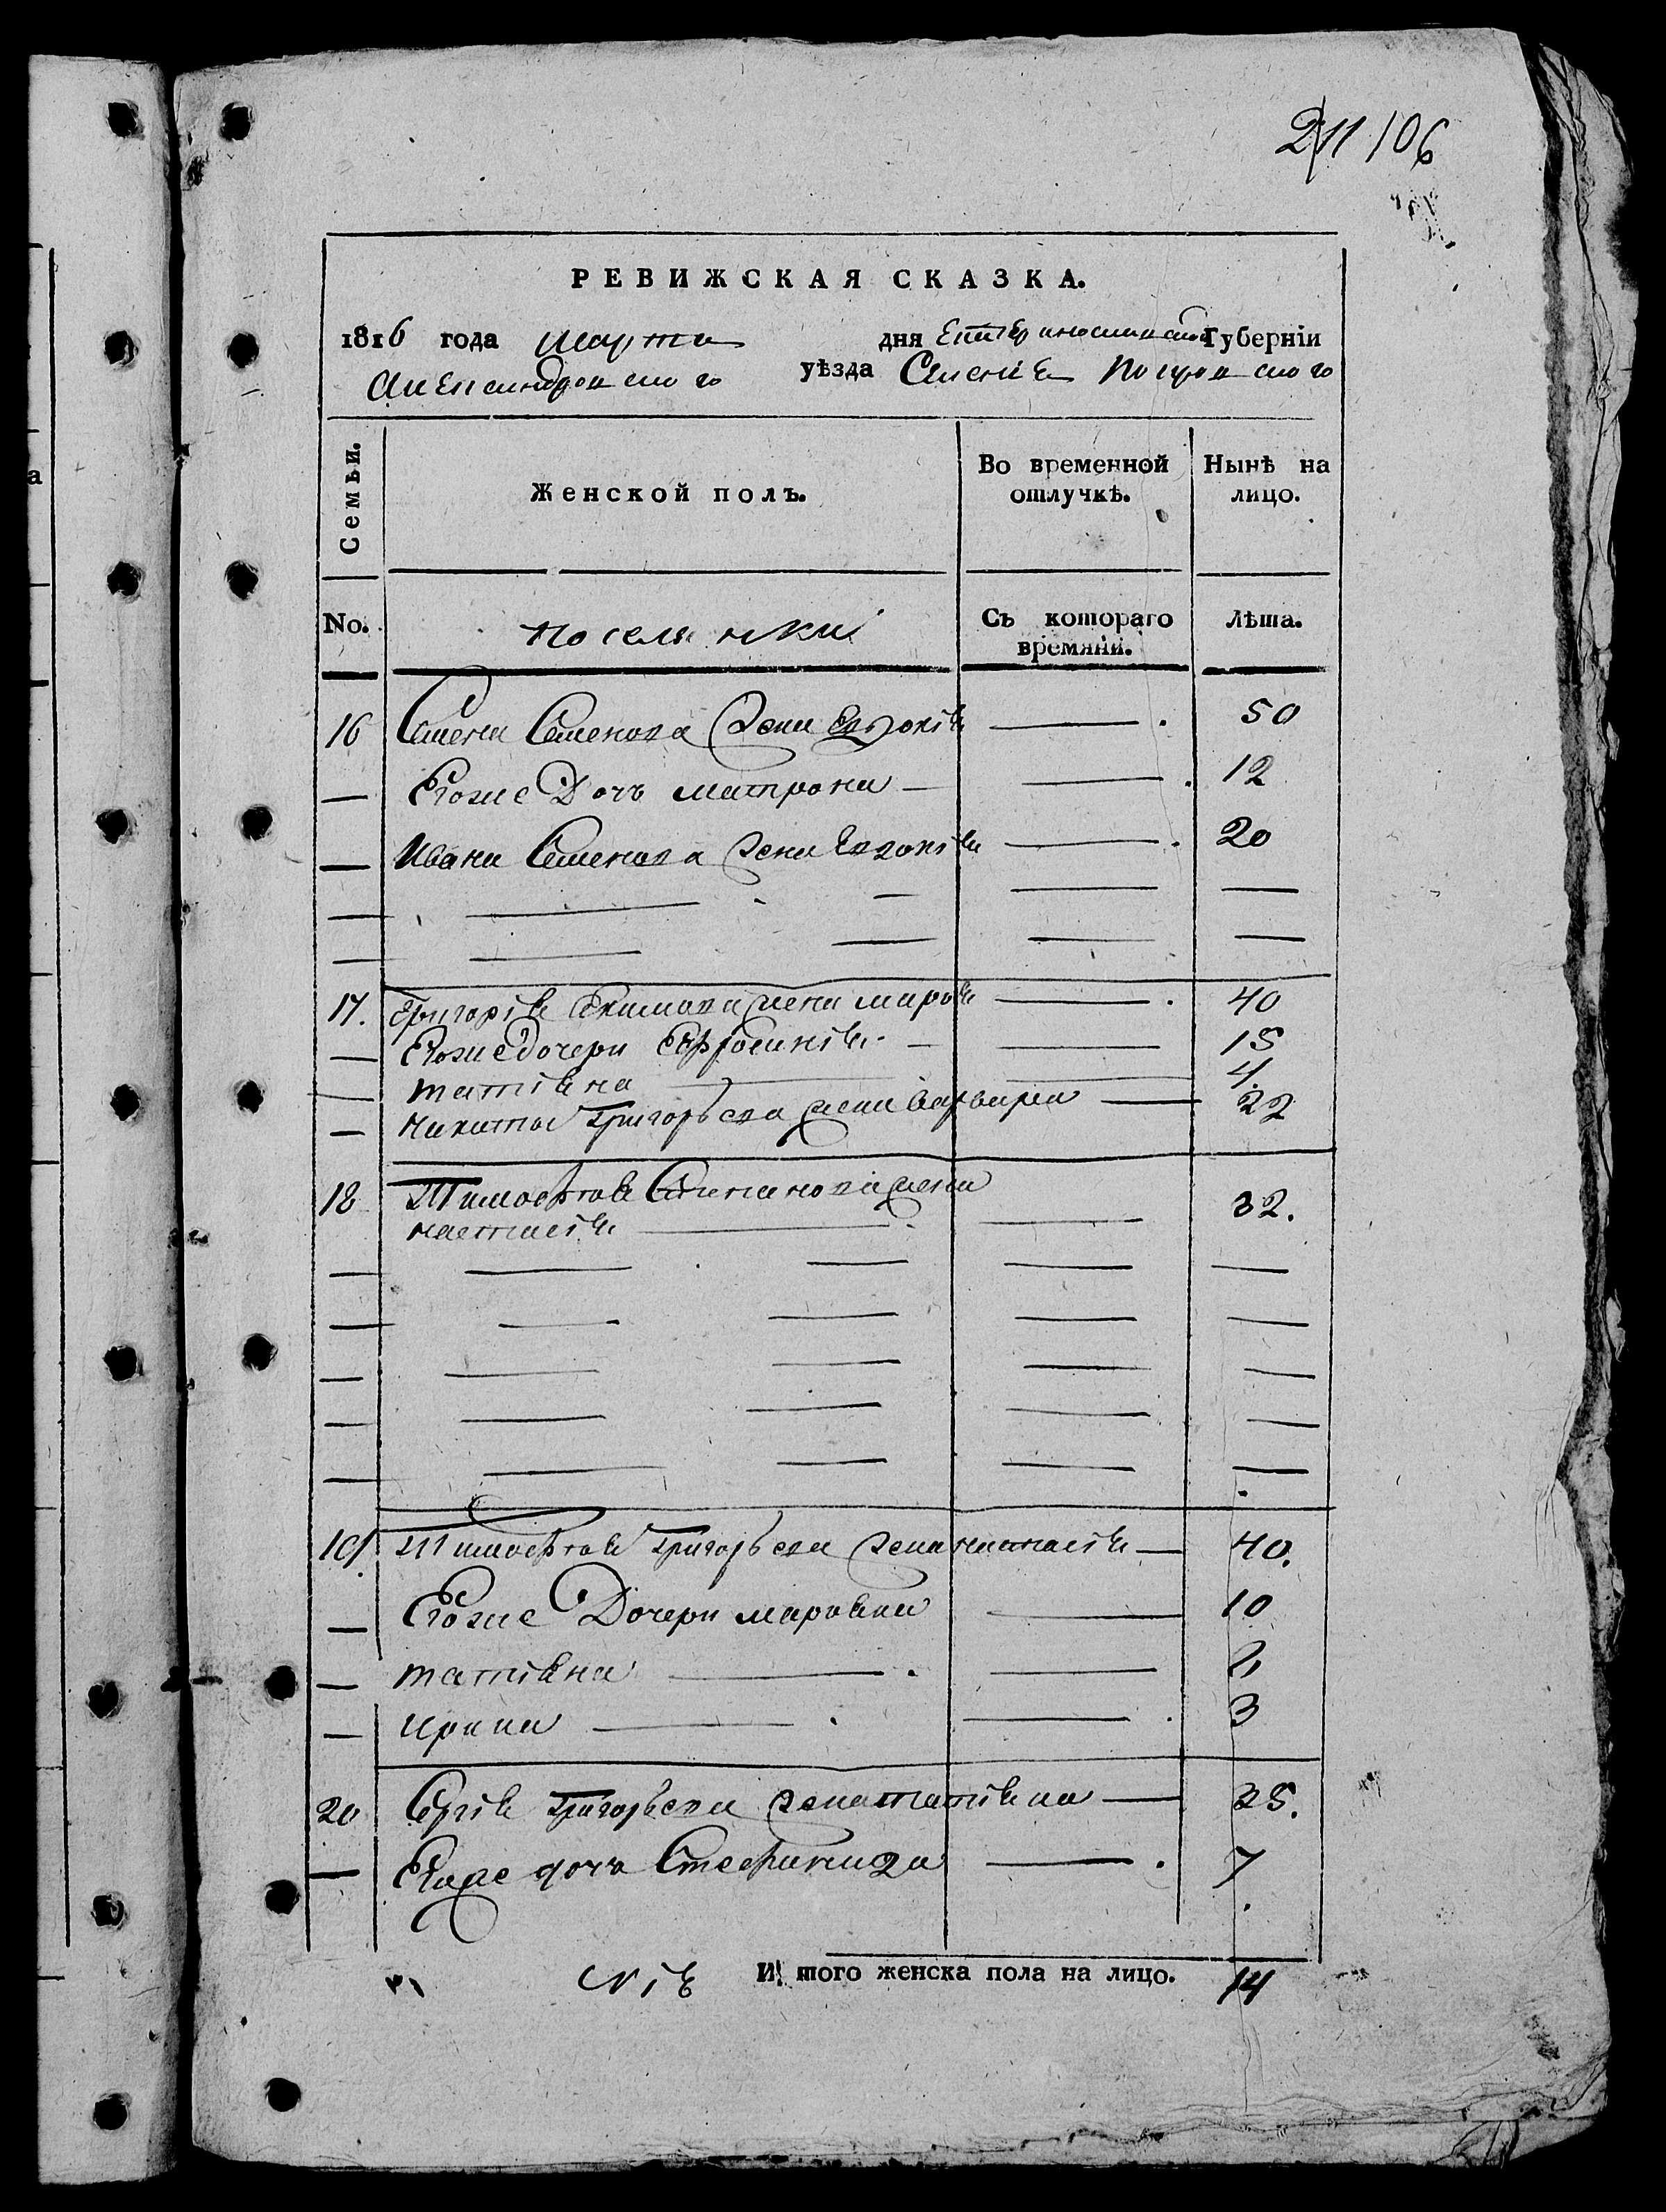 211 106
РЕВИЖСКАЯ СКАЗКА.
1816 года марта дня Екатеринославской Губерніи
Александровского уѣзда Селенія Покровского
Семьи.
Женской полъ.
Во временной отлучкѣ.
Нынѣ на лицо.
No.
поселянки
Съ котораго времяни.
Лѣта.
16 Семена Семенова жена Евдокія — 50
— Егоже Дочь матрона — 12
— Ивана Семенова жена Евдокія — 20
17. Григорія Екимова жена марфа — 40
— Егоже дочери Ефросинія — 15
— татіяна — 4
— Никиты Григорьева жена варвара — 22
18 Тимофея Степанова жена
настасія — 32.
19. Тимофея Григорьева жена настасія — 40.
— Егоже Дочери
— татіяна —
— ирина — 3
20 Сергія Григорьева жена татіяна — 35.
— Егоже дочь Степанида — 7
И того женска пола на лицо. 14